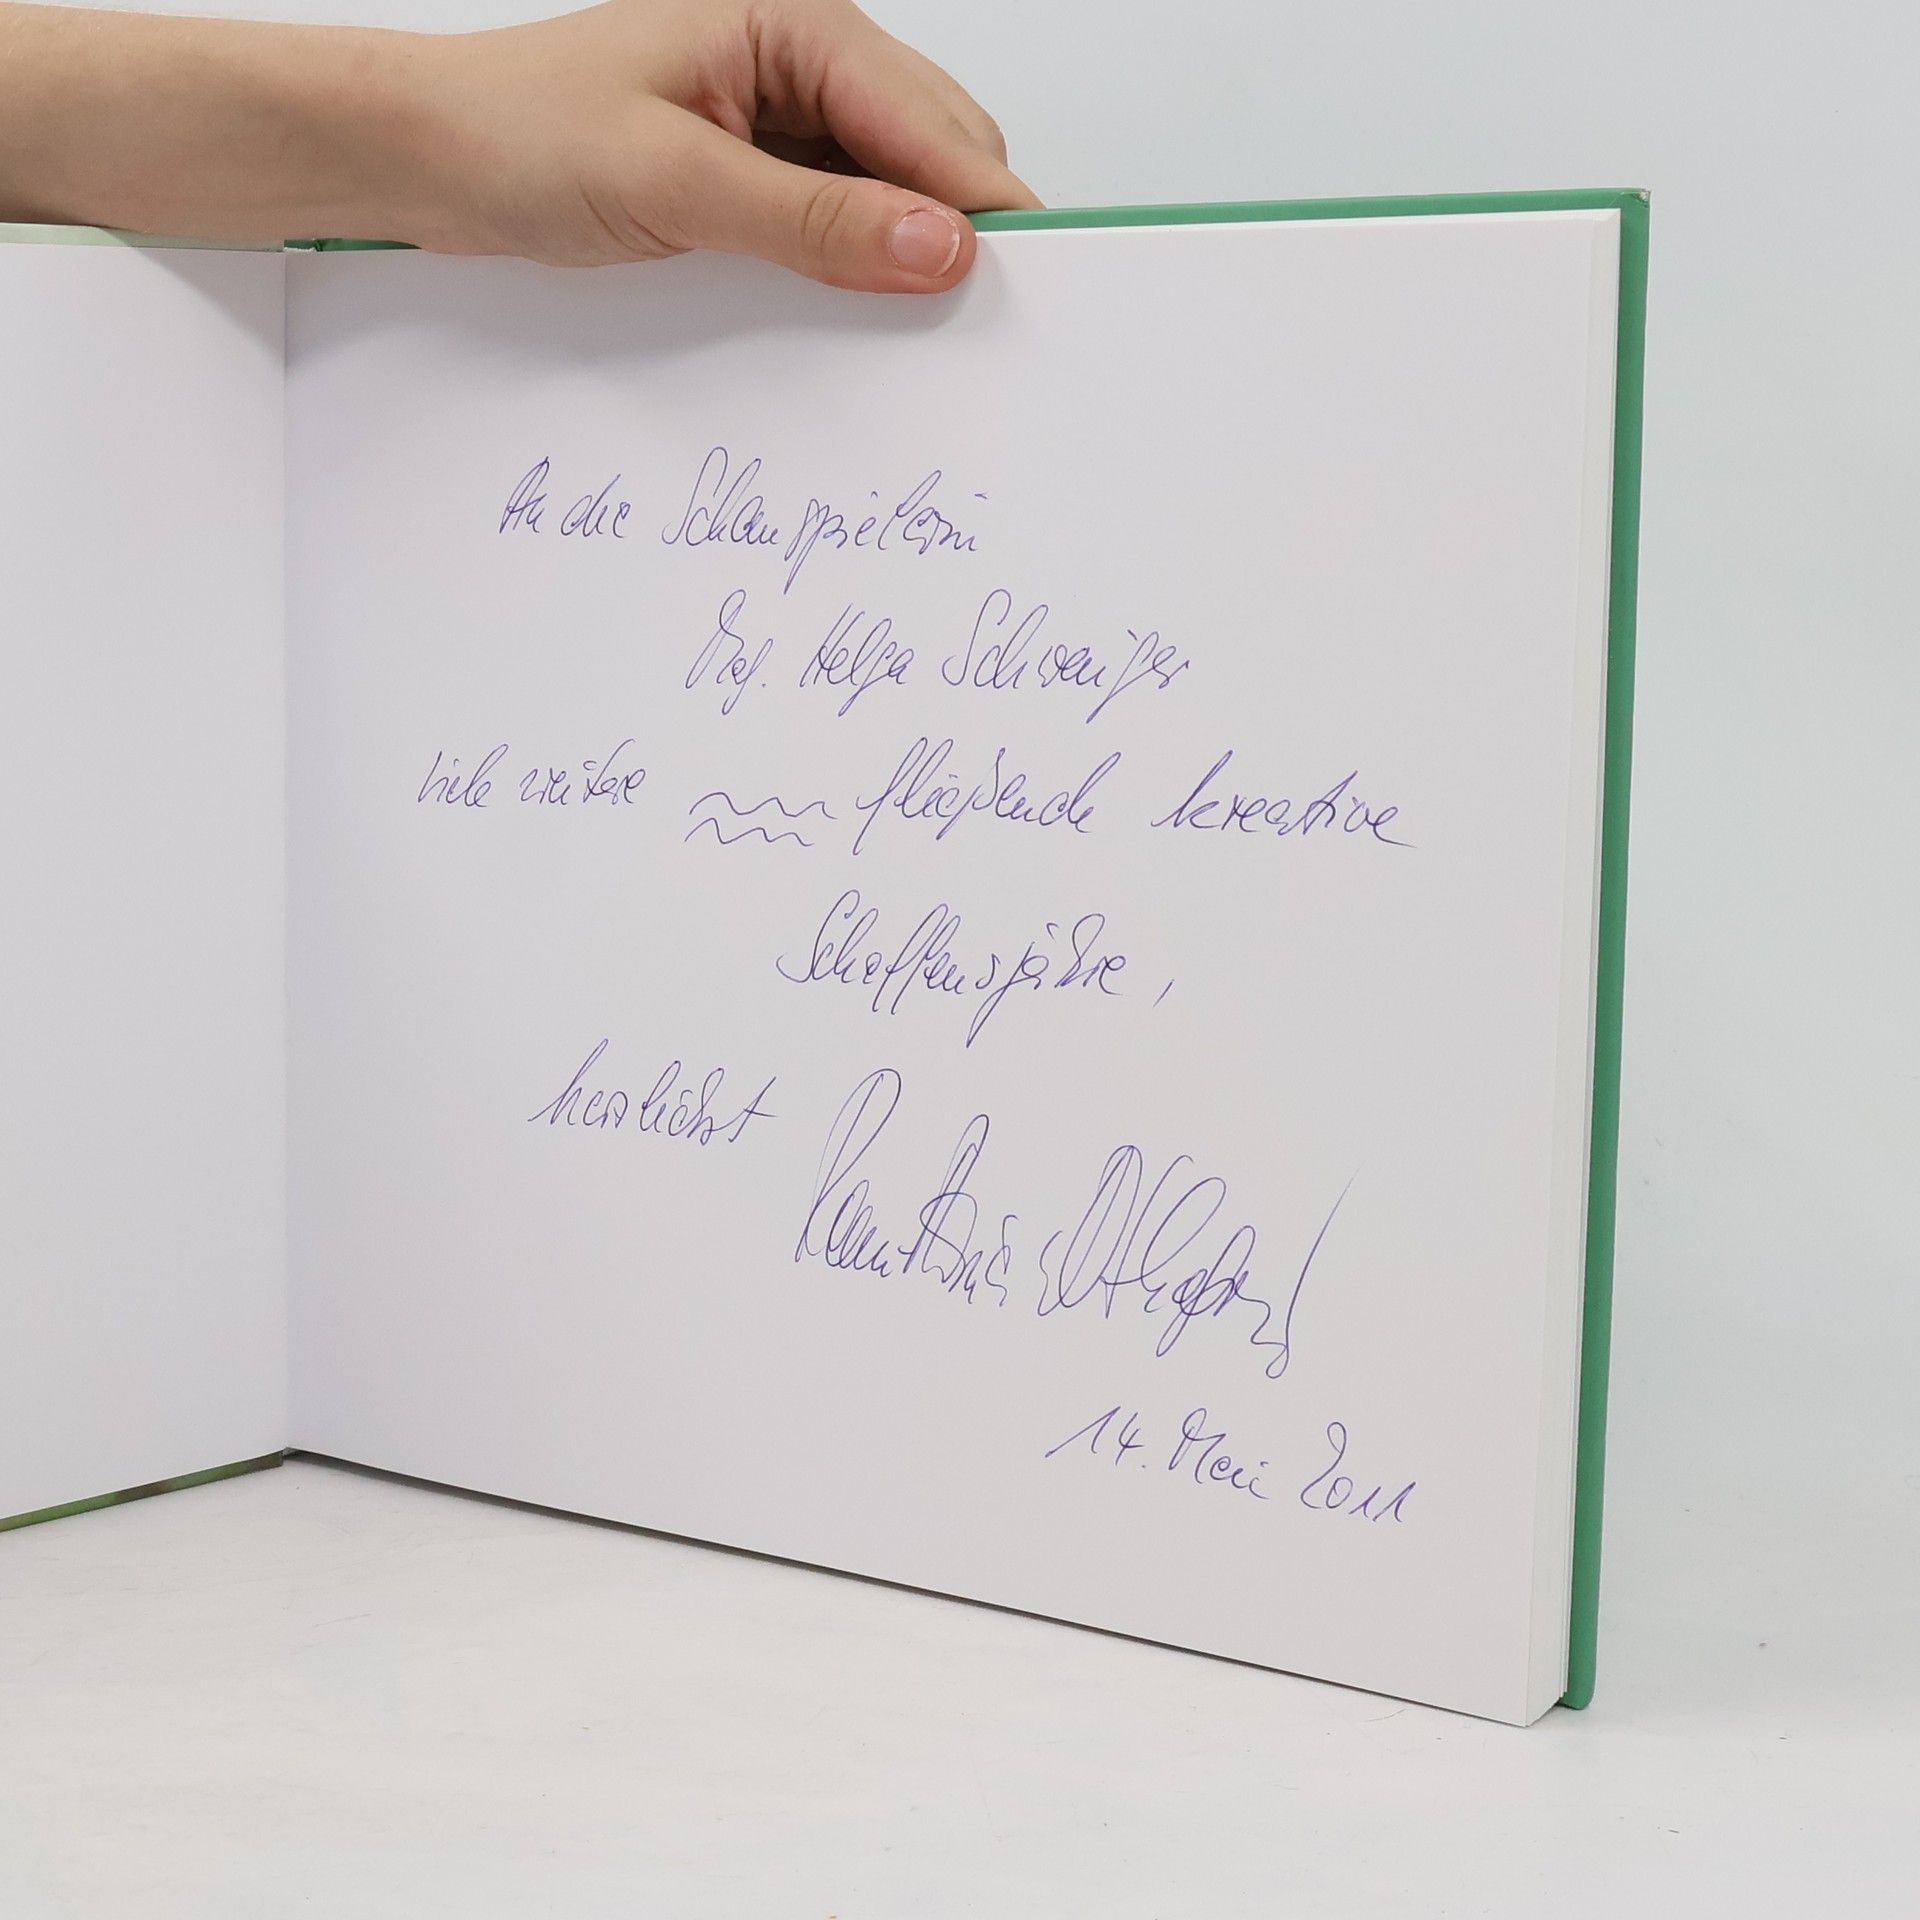 An die Schauspielerin
Mag. Helga Schweiger
viele weitere fließende kreative
Schaffensjahre,
herzlichst
14. Mai 2011